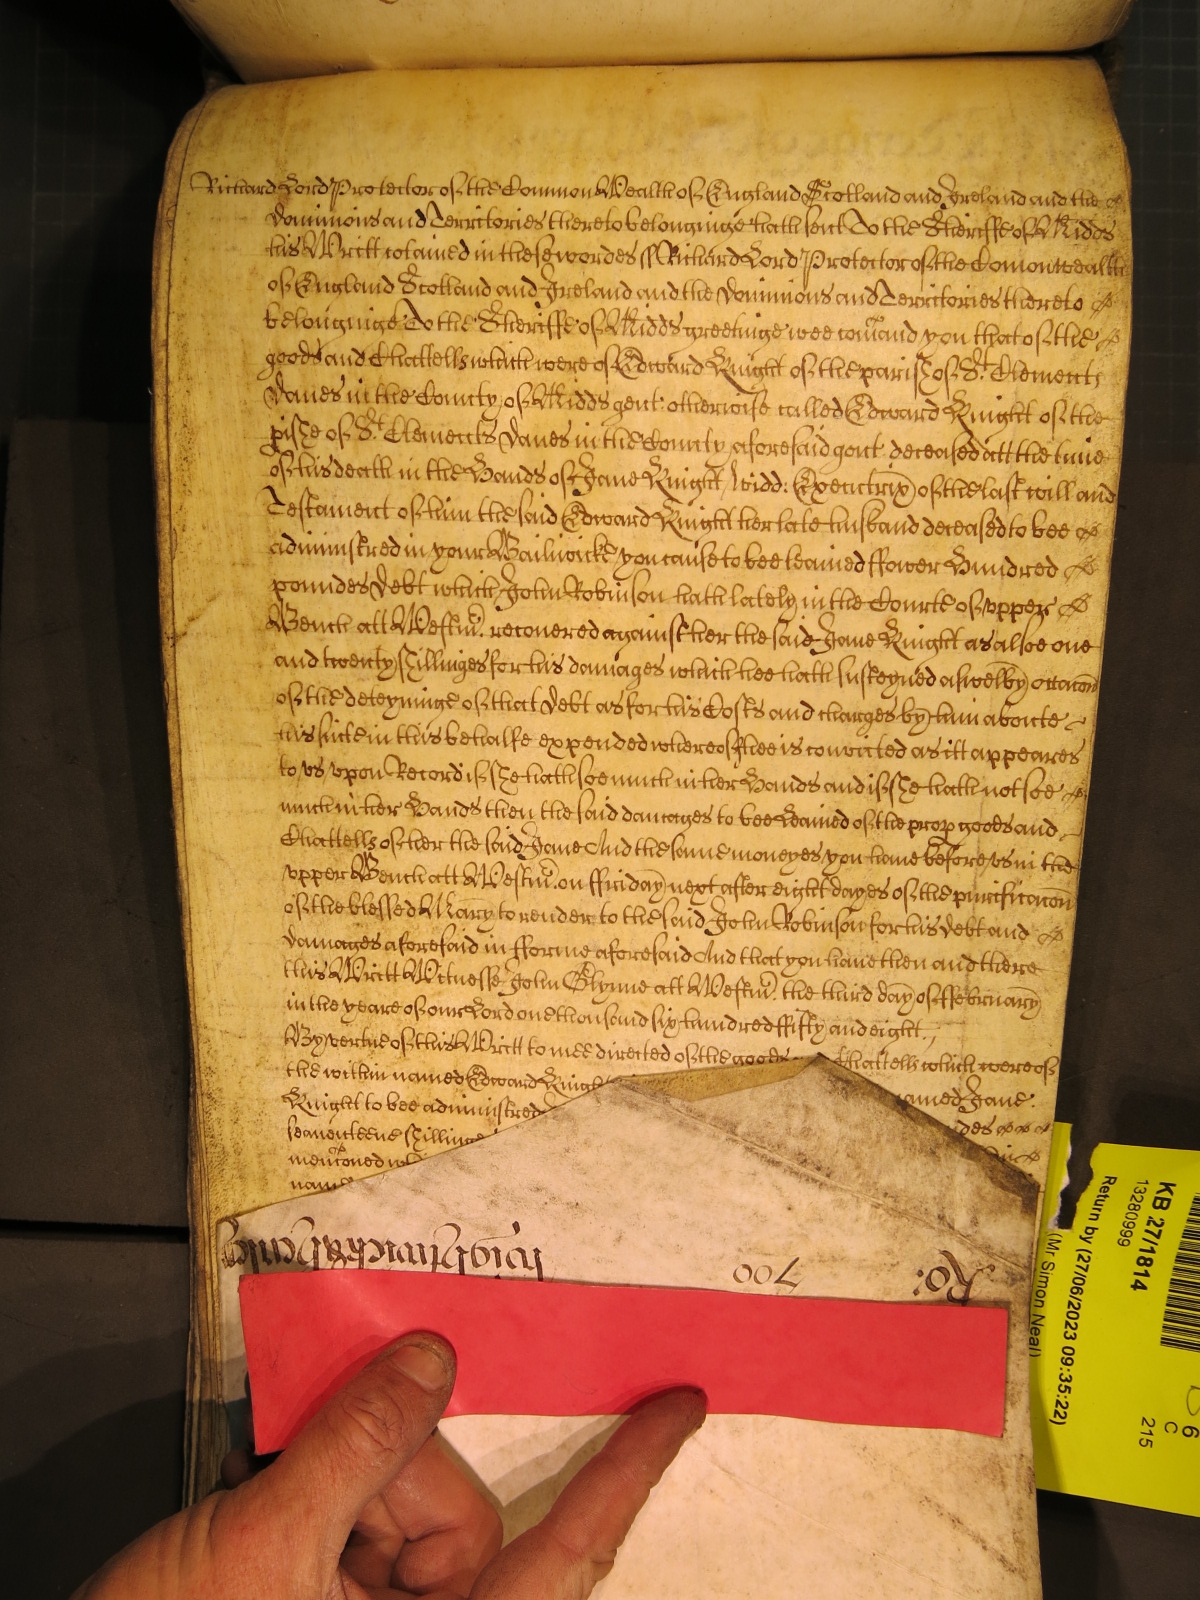 Richard Lord Protector of the Common Wealth of England Scotland and Ireland and the
dominions and Territories thereto belonginge hath sent To the Sheriffe of Midds
his Writt cotained in these wordes ss Richard Lord Protector of the Comonwealth
of England Scotland and Ireland and the dominions and Territories thereto
belonginge To the Sheriffe of Midds greetinge wee comand you that of the
goods and Chattells which were of Edward Knight of the parish of St. Clements
Danes in the County of Midds gent otherwise called Edward Knight of the
pishe of St. Clements Danes in the County aforesaid gent deceased att the time
of his death in the Hands of Jane Knight Widd: Executrix of the last will and
Testament of him the said Edward Knight her late husband deceased to bee
administred in your Bailiwicke you cause to bee leavied ffower Hundred
poundes Debt which John Robinson hath lately in the Courte of upper
Bench att Westm̃. recovered against her the said Jane Knight as alsoe one
and twenty shillinges for his damages which hee hath susteyned aswell by occacon
of the deteyninge of that Debt as for his Costs and charges by him aboute
his suite in this behalfe expended whereof shee is convicted as itt appeares
to us upon Record if she hath soe much in her Hands and if she hath not soe
much in her Hands then the said damages to bee leavied of the prop goods and
Chattells of her the said Jane And the same moneyes you have before us in the
upper Bench att Westm̃. on ffriday next after eight dayes of the purificacon
of the blessed Mary to render to the said John Robinson for his debt and
damages aforesaid in fforme aforesaid And that you have then and there
this Writt Witnesse John Glynne att Westm̃. the third day of ffebruary
in the yeare of our Lord one thousand six hundred ffifty and eight.
By vertue of this Writt to mee directed of the goods Chattells which were of
the within named Edward Knight named Jane
Knight to bee administred
seaventeene shillinge
mencōned
name
Ro: 700
KB 27/1814
13280999
Return by (27/06/2023 09:35:22)
(Mr Simon Neal)
6
C
215